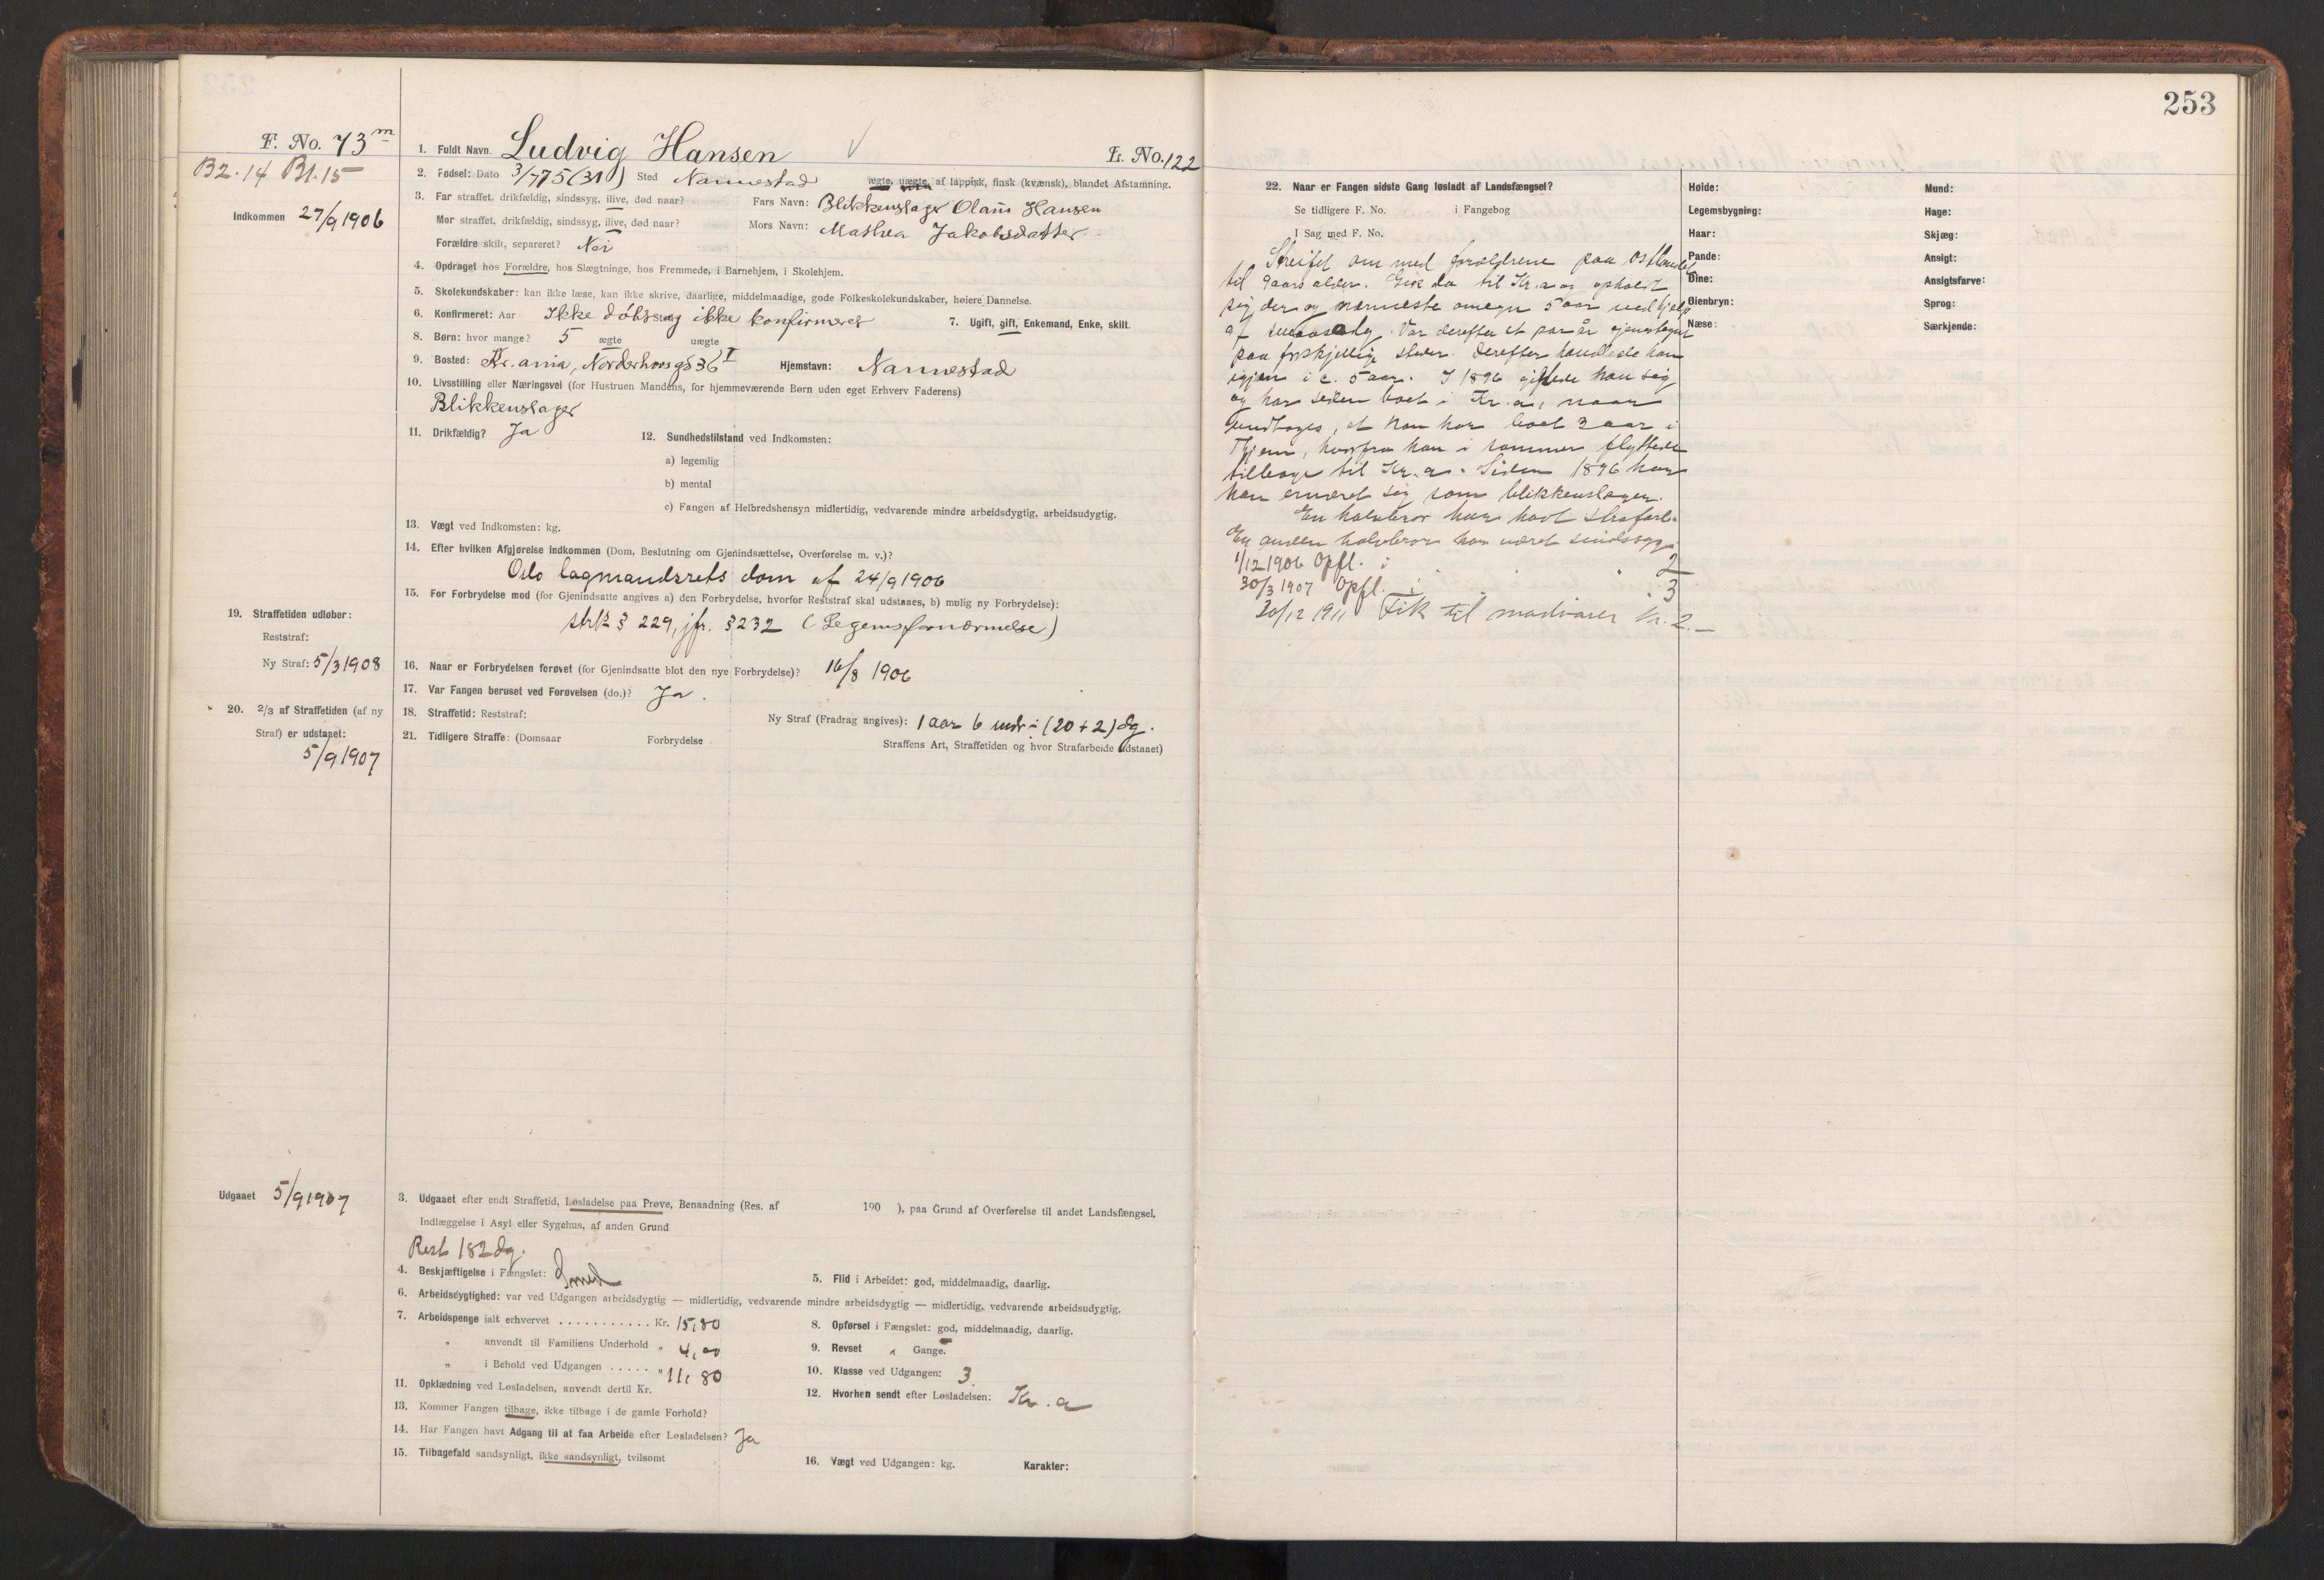 253
F. No. 73 m
B2. 14 Bl. 15
Indkommen 27/9 1906
1. Fuldt Navn. Ludvig Hansen L. No. 122
2. Fødsel: Dato 3/7 75 (31) Sted Nannestad ægte, uægte, af lappisk, finsk (kvænsk), blandet Afstamning.
3. Far straffet, drikfældig, sindssyg, ilive, død naar? Fars Navn: Blikkenslager Olaus Hansen
Mor straffet, drikfældig, sindssyg, ilive, død naar? Mors Navn: Mathea Jakobsdatter
Forældre skilt, separeret? Nei
4. Opdraget hos Forældre, hos Slægtninge, hos Fremmede, i Barnehjem, i Skolehjem.
5. Skolekundskaber: kan ikke læse, kan ikke skrive, daarlige, middelmaadige, gode Folkeskolekundskaber, høiere Dannelse.
6. Konfirmeret: Aar Ikke døbt og ikke konfirmeret 7. Ugift, gift, Enkemand, Enke, skilt.
8. Børn: hvor mange? 5 ægte uægte
9. Bosted: Kr.ania, Norderhovsgd 36 I Hjemstavn: Nannestad
10. Livsstilling eller Næringsvei (for Hustruen Mandens, for hjemmeværende Børn uden eget Erhverv Faderens)
Blikkenslager
11. Drikfældig? Ja 12. Sundhedstilstand ved Indkomsten:
a) legemlig
b) mental
c) Fangen af Helbredshensyn midlertidig, vedvarende mindre arbeidsdygtig, arbeidsudygtig.
13. Vægt ved Indkomsten: kg.
14. Efter hvilken Afgjørelse indkommen (Dom, Beslutning om Gjenindsættelse, Overførelse m. v.)?
Oslo lagmandsrets dom af 24/9 1906
15. For Forbrydelse mod (for Gjenindsatte angives a) den Forbrydelse, hvorfor Reststraf skal udstaaes, b) mulig ny Forbrydelse):
strfl. § 229, jfr. § 232 (Legemsfornærmelse)
19. Straffetiden udløber:
Reststraf:
Ny Straf: 5/3 1908
16. Naar er Forbrydelsen forøvet (for Gjenindsatte blot den nye Forbrydelse)? 16/8 1906
17. Var Fangen beruset ved Forøvelsen (do.)? Ja.
20. 2/3 af Straffetiden (af ny
Straf) er udstaaet:
5/9 1907
18. Straffetid: Reststraf: Ny Straf (Fradrag angives): 1 aar 6 mdr ÷ (20 + 2) dg.
21. Tidligere Straffe: (Domsaar Forbrydelse Straffens Art, Straffetiden og hvor Strafarbeide udstaaet)
Udgaaet 5/9 1907
3. Udgaaet efter endt Straffetid, Løsladelse paa Prøve, Benaadning (Res. af 190 ), paa Grund af Overførelse til andet Landsfængsel,
Indlæggelse i Asyl eller Sygehus, af anden Grund
Rest 182 dg.
4. Beskjæftigelse i Fængslet: Smed 5. Flid i Arbeidet: god, middelmaadig, daarlig.
6. Arbeidsdygtighed: var ved Udgangen arbeidsdygtig — midlertidig, vedvarende mindre arbeidsdygtig — midlertidig, vedvarende arbeidsudygtig.
7. Arbeidspenge ialt erhvervet . . . . . . . . . . . Kr. 15,80 8. Opførsel i Fængslet: god, middelmaadig, daarlig.
" anvendt til Familiens Underhold " 4,00 9. Revset " Gange.
" i Behold ved Udgangen . . . . . " 11,80 10. Klasse ved Udgangen: 3.
11. Opklædning ved Løsladelsen, anvendt dertil Kr. 12. Hvorhen sendt efter Løsladelsen: Kr.a
13. Kommer Fangen tilbage, ikke tilbage i de gamle Forhold?
14. Har Fangen havt Adgang til at faa Arbeide efter Løsladelsen? Ja
15. Tilbagefald sandsynligt, ikke sandsynligt, tvilsomt 16. Vægt ved Udgangen: kg. Karakter:
22. Naar er Fangen sidste Gang løsladt af Landsfængsel?
Se tidligere F. No. i Fangebog
I Sag med F. No.
Streifet om med forældrene paa Østlandet
til 9 aars alder. Gik da til Kr.a og opholdt
sig der og nærmeste omegn 5 aar ved hjelp
af smaaarbeide. Var derefter et par år
paa forskjellige steder. Derefter handlede han
igjen i c. 5 aar. I 1896 giftede han sig
og har siden boet i Kr.a, naar
undtages, at han har boet 3 aar i
Tjøm, hvorfra han i sommer flyttede
tilbage til Kr.a. Siden 1896 har
han ernæret sig som blikkenslager.
En halvbror har havt strafarb.
En anden halvbror har været sindssyg.
1/12 1906 Opfl. i 2
30/3 1907 Opfl. i 3
20/12 1911 Fik til madvarer kr. 2.—
Høide:
Legemsbygning:
Haar:
Pande:
Øine:
Øienbryn:
Næse:
Mund:
Hage:
Skjæg:
Ansigt:
Ansigtsfarve:
Sprog:
Særkjende: